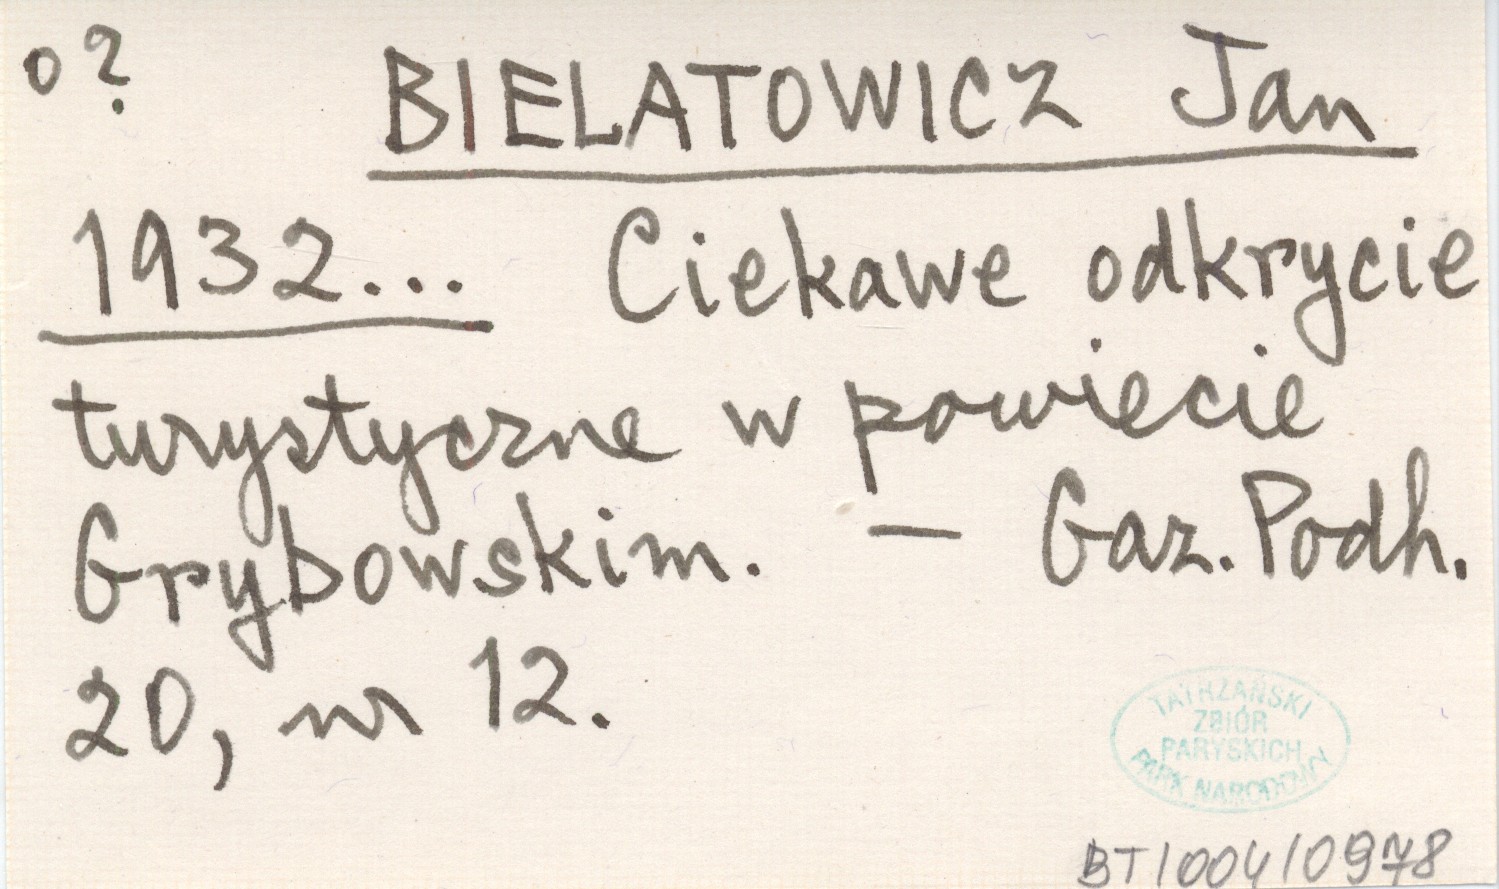 o?
BIELATOWICZ Jan
1932... Ciekawe odkrycie
turystyczne w powiecie
Grybowskim. – Gaz. Podh.
20, nr 12.
TATRZAŃSKI
ZBIÓR
PARYSKICH
PARK NARODOWY
BT/004/0978